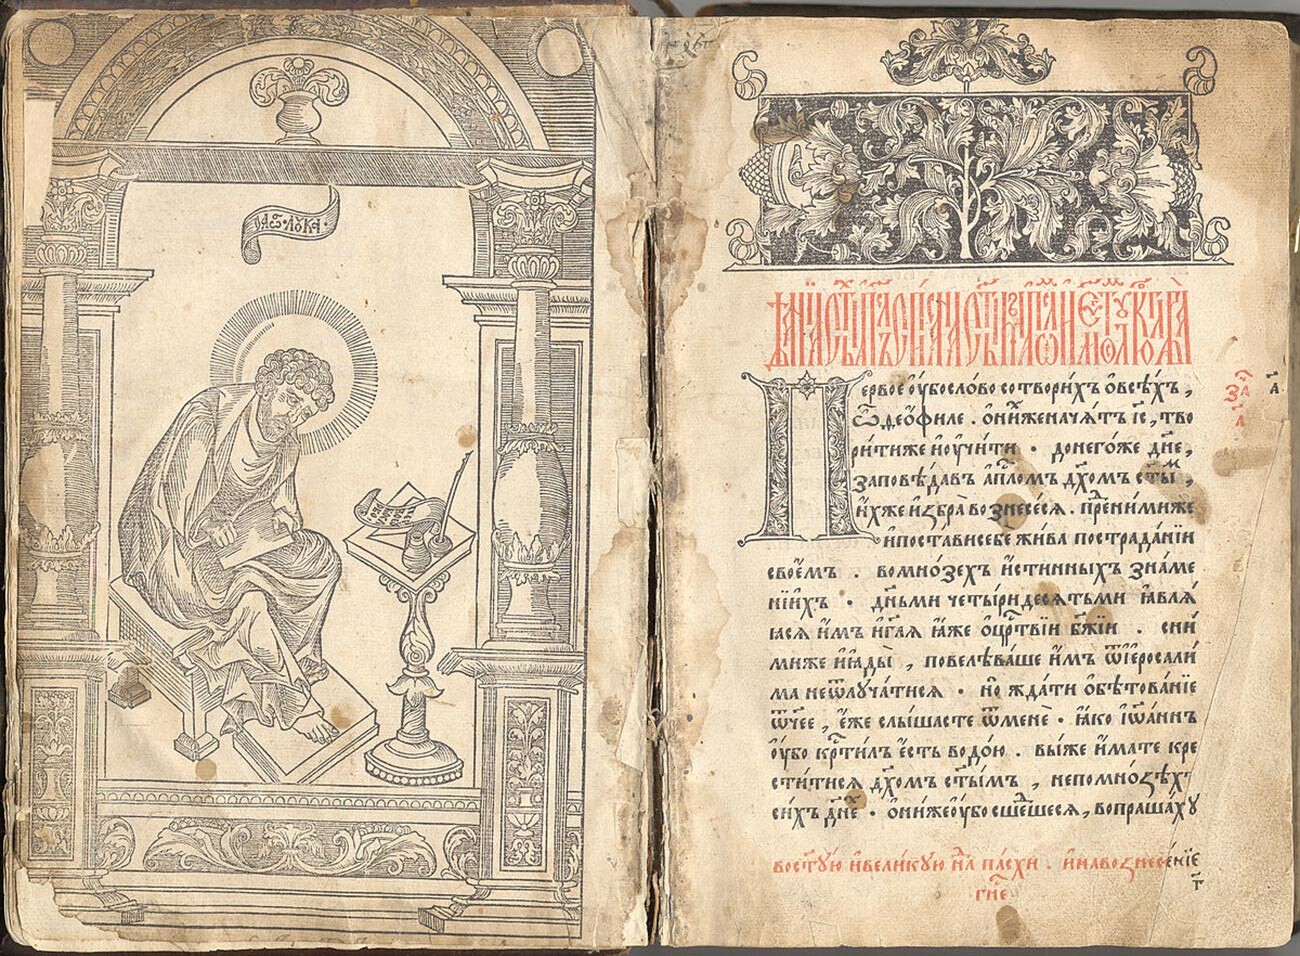 ѻ҆а҆ѿ · лꙋка ·
Первое ᲂу҆бо слово сотвори́хъ ѻ҆ всѣ́хъ ,
ѽ , део́филе . ѡ҆ ни́х же нача́тъ і҆с҃ , тво
ри́ти же и҆ ᲂу҆чи́ти · до него́же дн҃е ,
заповѣ́давъ а҆пⷭ҇лом дх҃ом ст҃ы́м ,
и҆́хже и҆збра̀ вознесе́сѧ . пред ни́ми же
и҆ поста́ви себе жи́ва по страда́нїи
свое́мъ . во мно́зехъ и҆́стинныхъ зна́ме
нїи҆хъ · дн҃ьми четы́ридесѧтьми ꙗ҆влѧ́
ꙗсѧ и҆̀мъ и҆ гл҃ѧ ꙗ҆́же ѡ҆ црⷭ҇твїи бж҃їи . с ни́
миже и҆ ꙗ҆ды̀ , повелѣва́ше и҆̀мъ ѿ і҆еросали́
ма не ѿлуча́тисѧ · но жда́ти ѻ҆бѣтова́нїе
ѿч҃ее , е҆́же слы́шасте ѿ менѐ · ꙗ҆́ко і҆ѡ҃аннъ
ᲂу҆́бо крⷭ҇ти́лъ е҆́сть водо́ю . вы́ же и҆́мате кре
сти́тисѧ дх҃омъ ст҃ы́мъ , не по мно́ѕѣхъ
си́хъ дн҃е · ѻ҆ни́же ᲂу҆́бо сше́дшесѧ , вопраша́хꙋ
во ст҃ꙋ́ю и҆ вели́кꙋю нлⷣѧ па́схи . и҆ на вознесе́нїе
гнⷭ҇е